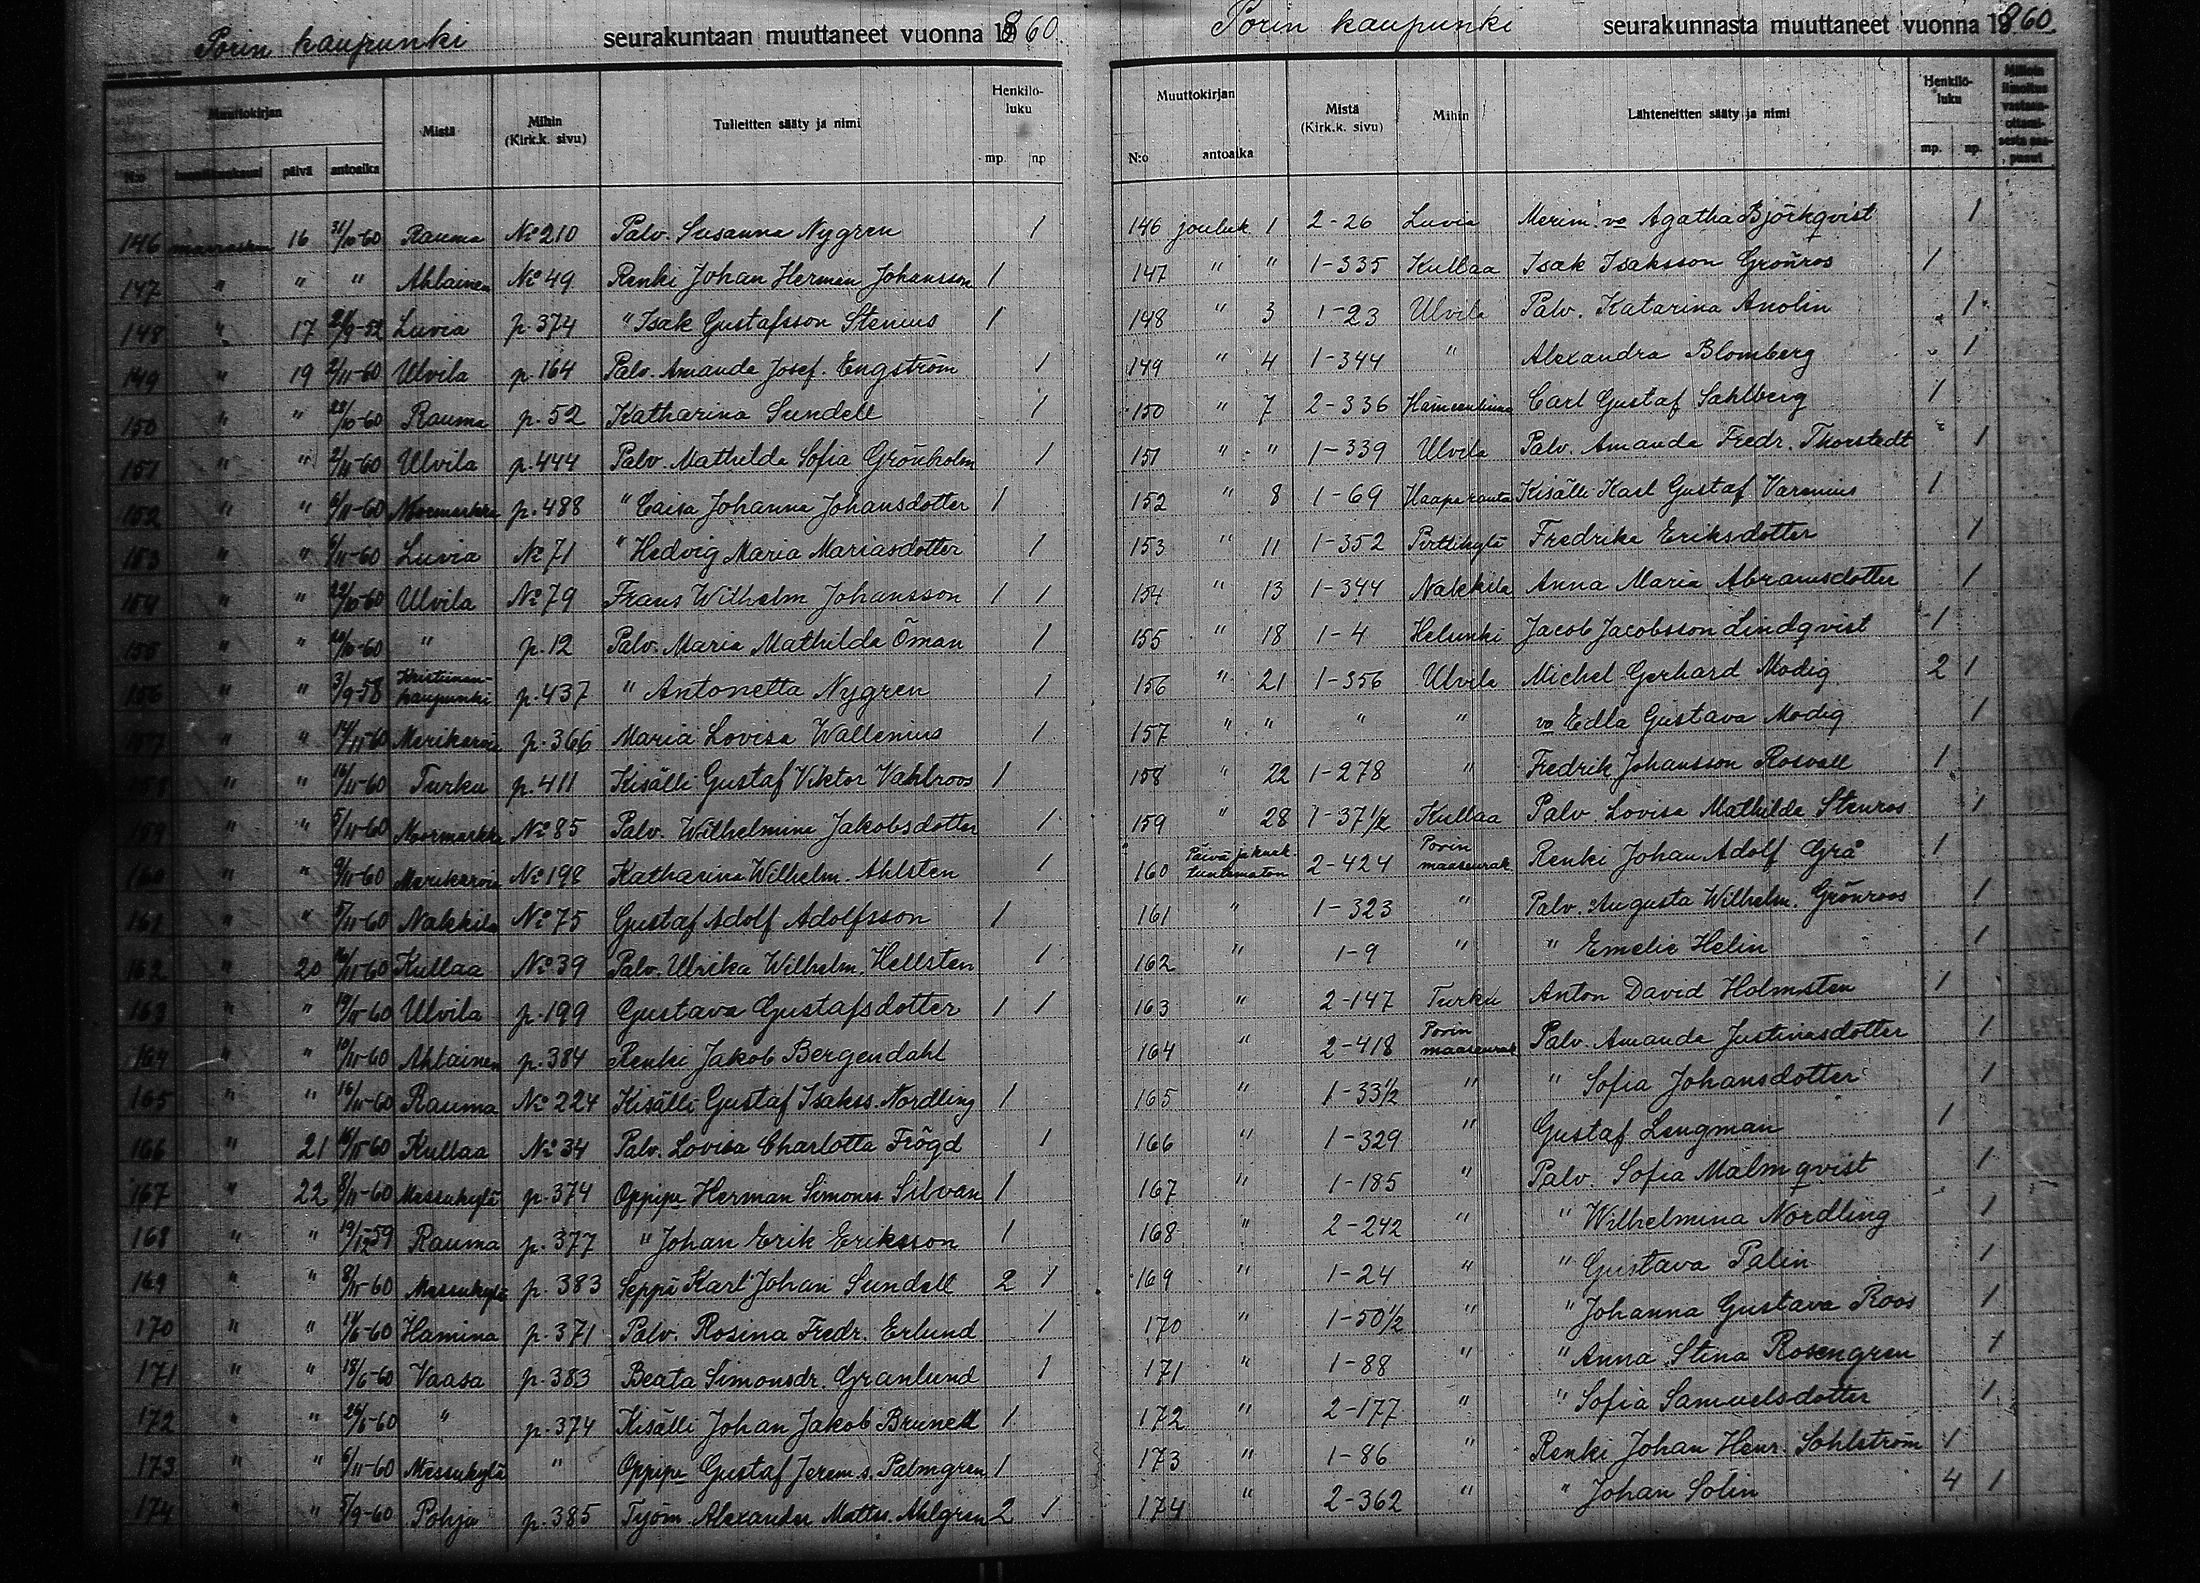 Porin kaupunki seurakuntaan muuttaneet vuonna 1860.
Muuttokirjan Mistä Mihin (Kirk.k. sivu) Tulleitten sääty ja nimi Henkilöluku
N:o kuukausi päivä antoaika mp. np
146 marraskuu 16 31/10-60 Rauma No 210 Palv. Susanna Nygren 1
147 " " " Ahlainen No 49 Renki Johan Herman Johansson 1
148 " 17 Luvia p. 374 " Isak Gustafsson Stenius 1
149 " 19 2/11-60 Ulvila p. 164 Palv. Amanda Josef. Engström 1
150 " " 29/10-60 Rauma p. 52 Katharina Sundell 1
151 " " 2/11-60 Ulvila p. 444 Palv. Mathilda Sofia Grönholm 1
152 " " Noormarkku p. 488 " Caisa Johanna Johansdotter 1
153 " " Luvia No 71 " Hedvig Maria Mariasdotter 1
154 " " 22/10-60 Ulvila No 79 Frans Wilhelm Johansson 1 1
155 " " " p. 12 Palv. Maria Mathilda Öman 1
156 " " 3/9-58 Kristiinankaupunki p. 437 " Antonetta Nygren 1
157 " " 14/11-60 Merikarvia p. 366 Maria Lovisa Wallenius 1
158 " " 16/11-60 Turku p. 411 Kisälli Gustaf Viktor Vahlroos 1
159 " " 5/11-60 Noormarkku No 85 Palv. Wilhelmina Jakobsdotter 1
160 " " Merikarvia No 198 Katharina Wilhelm. Ahlsten 1
161 " " Nakkila No 75 Gustaf Adolf Adolfsson 1
162 " 20 Kullaa No 39 Palv. Ulrika Wilhelm. Hellsten 1
163 " " 19/11-60 Ulvila p. 199 Gustava Gustafsdotter 1 1
164 " " 10/11-60 Ahlainen p. 384 Renki Jakob Bergendahl
165 " " 16/11-60 Rauma No 224 Kisälli Gustaf Isakss. Nordling 1
166 " 21 16/11-60 Kullaa No 34 Palv. Lovisa Charlotta Frögd 1
167 " 22 8/11-60 Messukylä p. 374 Oppip. Herman Simonss. Silvan 1
168 " " 19/12-59 Rauma p. 377 " Johan Erik Eriksson 1
169 " " 8/11-60 Messukylä p. 383 Seppä Karl Johan Sundell 2 1
170 " " Hamina p. 371 Palv. Rosina Fredr. Erlund 1
171 " " 18/6-60 Vaasa p. 383 Beata Simonsdr. Granlund 1
172 " " 26/6-60 " p. 374 Kisälli Johan Jakob Brunell 1
173 " " 6/11-60 Messukylä " Oppip. Gustaf Jerem.s. Palmgren 1
174 " " 5/9-60 Pohja p. 385 Työm. Alexander Matts. Ahlgren 2 1
Porin kaupunki seurakunnasta muuttaneet vuonna 1860.
Muuttokirjan Mistä (Kirk.k. sivu) Mihin Lähteneitten sääty ja nimi Henkilöluku Milloin ilmoitus vastaanottamisesta saapunut
N:o antoaika mp. np.
146 jouluk. 1 2-26 Luvia Merim. vo Agatha Björkqvist 1
147 " " 1-335 Kullaa Isak Isaksson Grönros 1
148 " 3 1-23 Ulvila Palv. Katarina Anolin 1
149 " 4 1-344 " Alexandra Blomberg 1
150 " 7 2-336 Hämeenlinna Carl Gustaf Sahlberg 1
151 " " 1-339 Ulvila Palv. Amanda Fredr. Thorstedt 1
152 " 8 1-69 Haaparanta Kisälli Karl Gustaf Varenius 1
153 " 11 1-352 Pirttikylä Fredrika Eriksdotter 1
154 " 13 1-344 Nakkila Anna Maria Abramsdotter 1
155 " 18 1-4 Helsinki Jacob Jacobsson Lindqvist 1
156 " 21 1-356 Ulvila Michel Gerhard Modig 2 1
157 " " " " vo Edla Gustava Modig 1
158 " 22 1-278 " Fredrik Johansson Rosvall 1
159 " 28 1-37 1/2 Kullaa Palv. Lovisa Mathilda Stenros 1
160 Päivä ja kuuk. tuntematon 2-424 Porin maaseurak. Renki Johan Adolf Grå 1
161 " 1-323 " Palv. Augusta Wilhelm. Grönroos 1
162 " 1-9 " " Emelie Helin 1
163 " 2-147 Turku Anton David Holmsten 1
164 " 2-418 Porin maaseurak Palv. Amanda Justinasdotter 1
165 " 1-33 1/2 " " Sofia Johansdotter 1
166 " 1-329 " Gustaf Lengman 1
167 " 1-185 " Palv. Sofia Malmqvist 1
168 " 2-242 " " Wilhelmina Nordling 1
169 " 1-24 " " Gustava Palin 1
170 " 1-50 1/2 " " Johanna Gustava Roos 1
171 " 1-88 " " Anna Stina Rosengren 1
172 " 2-177 " " Sofia Samuelsdotter 1
173 " 1-86 " Renki Johan Henr. Sohlström 1
174 " 2-362 " " Johan Solin 4 1